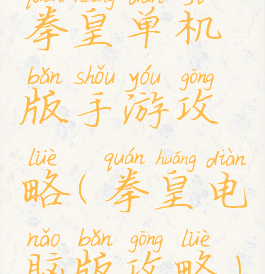 quán huáng dān jī
拳皇单机
bǎn shǒu yóu gōng
版手游攻
lüè quán huáng diàn
略(拳皇电
nǎo bǎn gōng lüè
脑版攻略)